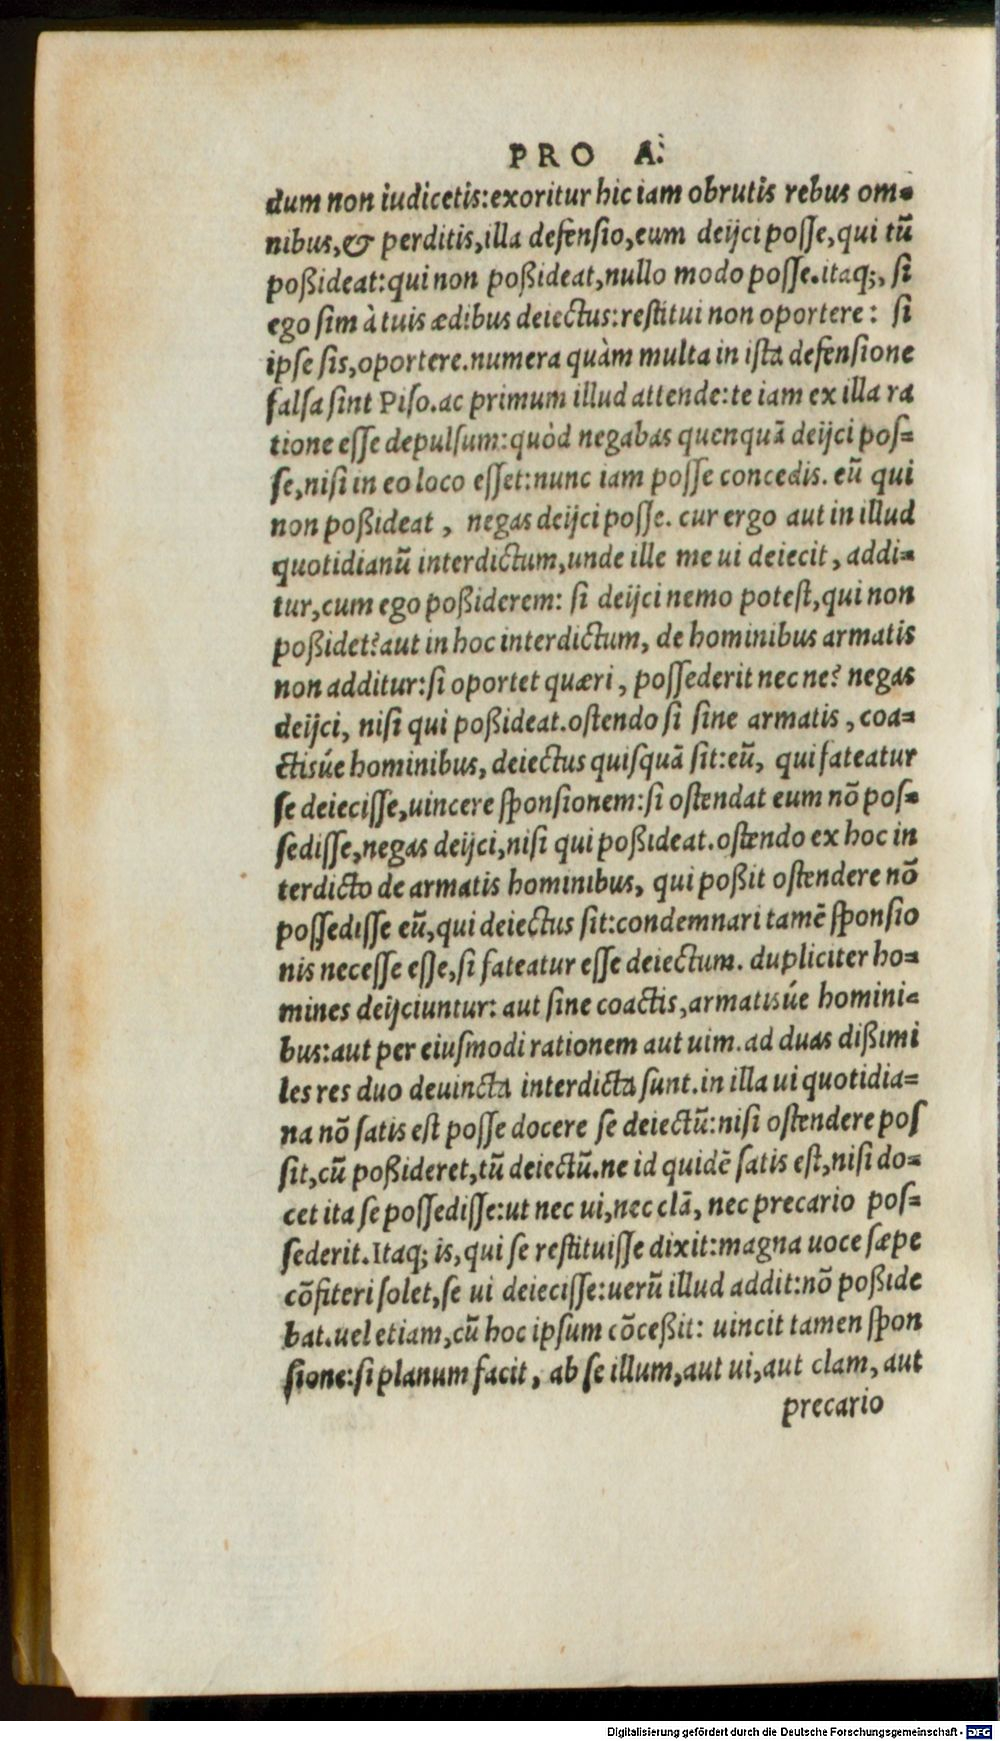 PRO A.
dum non iudicetis:exoritur hic iam obrutis rebus om-
nibus,& perditis,illa defensio,eum deijci posse,qui tū
poßideat:qui non poßideat,nullo modo posse.itaq;, si
ego sim à tuis ædibus deiectus:restitui non oportere: si
ipse sis,oportere.numera quàm multa in ista defensione
falsa sint Piso.ac primum illud attende:te iam ex illa ra
tione esse depulsum:quòd negabas quenquā deijci pos=
se,nisi in eo loco esset:nunc iam posse concedis. eū qui
non poßideat , negas deijci posse. cur ergo aut in illud
quotidianū interdictum,unde ille me ui deiecit, addi=
tur,cum ego poßiderem: si deijci nemo potest,qui non
poßidet?aut in hoc interdictum, de hominibus armatis
non additur:si oportet quæri, possederit nec ne? negas
deijci, nisi qui poßideat.ostendo si sine armatis, coa=
ctisúe hominibus, deiectus quisquā sit:eū, qui fateatur
se deiecisse,uincere sponsionem:si ostendat eum nō pos=
sedisse,negas deijci,nisi qui poßideat.ostendo ex hoc in
terdicto de armatis hominibus, qui poßit ostendere nō
possedisse eū,qui deiectus sit:condemnari tamē sponsio
nis necesse esse,si fateatur esse deiectum. dupliciter ho=
mines deijciuntur: aut sine coactis,armatisúe homini=
bus:aut per eiusmodi rationem aut uim.ad duas dißimi
les res duo deuincta interdicta sunt.in illa ui quotidia=
na nō satis est posse docere se deiectū:nisi ostendere pos
sit,cū poßideret,tū deiectū.ne id quidē satis est,nisi do=
cet ita se possedisse:ut nec ui,nec clā, nec precario pos=
sederit.Itaq; is,qui se restituisse dixit:magna uoce sæpe
cōfiteri solet,se ui deiecisse:uerū illud addit:nō poßide
bat.uel etiam,cū hoc ipsum cōceßit: uincit tamen spon
sione:si planum facit, ab se illum,aut ui,aut clam, aut
precario
Digitalisierung gefördert durch die Deutsche Forschungsgemeinschaft - DFG